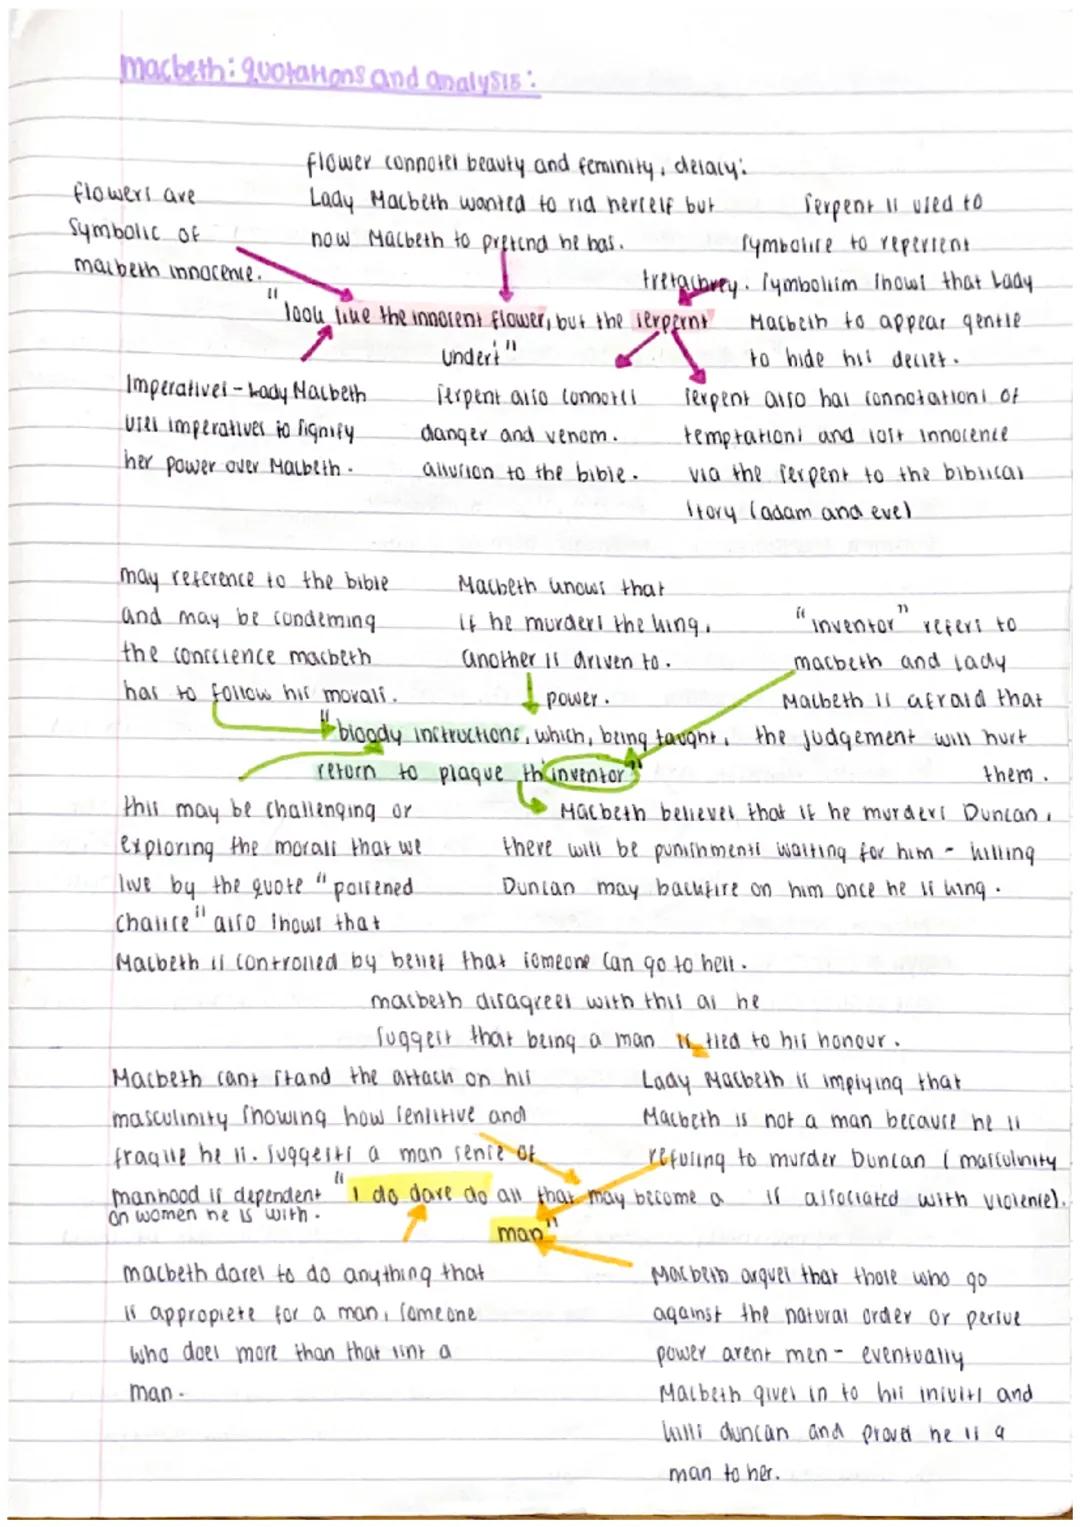 macbeth: quotations and analysis:
flower connotes beauty and feminity, delacy:
Lady Macbeth wanted to rid herself but
now Macbeth to pretend he has.
flowers are
symbolic of
macbeth innocence.
Serpent is used to
symbolise to repersent
tretachrey. symbolism shows that Lady
Macbeth to appear gentle
to hide his deciet.
"look like the innocent flower, but the serpernt
undert"
Imperatives - Lady Macbeth
uses imperatives to signify
her power over Macbeth.
Serpent also connotes
danger and venom.
allusion to the bible.
serpent also has connotations of
temptations and lost innocence
via the serpent to the biblical
story (adam and eve)
may reference to the bible
and may be condeming
the conscience macbeth
has to follow his morals.
Macbeth knows that
if he murders the king,
another is driven to.
power.
"inventor" refers to
macbeth and lady
Macbeth is afraid that
the judgement will hurt
them.
"bloody instructions, which, being taught,
return to plaque th'inventor"
this may be challenging or
exploring the morals that we
live by the quote "poisened
chalice" also shows that
Macbeth is controlled by belief that someone can go to hell.
Macbeth believes that if he murders Duncan,
there will be punishments waiting for him - killing
Duncan may backfire on him once he is king.
macbeth disagrees with this as he
suggest that being a man is tied to his honour.
Macbeth cant stand the attack on his
masculinity showing how sensitive and
fragile he is. suggests a man sense of
manhood is dependent
on women he is with.
Lady Macbeth is implying that
Macbeth is not a man because he is
refusing to murder Duncan (masculnity
is associated with violence).
"I do dare do all that may become a
man"
macbeth dares to do anything that
is appropiete for a man, someone
who does more than that isnt a
man.
Macbeth argues that those who go
against the natural order or persue
power arent men - eventually
Macbeth gives in to his insults and
kills duncan and proves he is a
man to her.